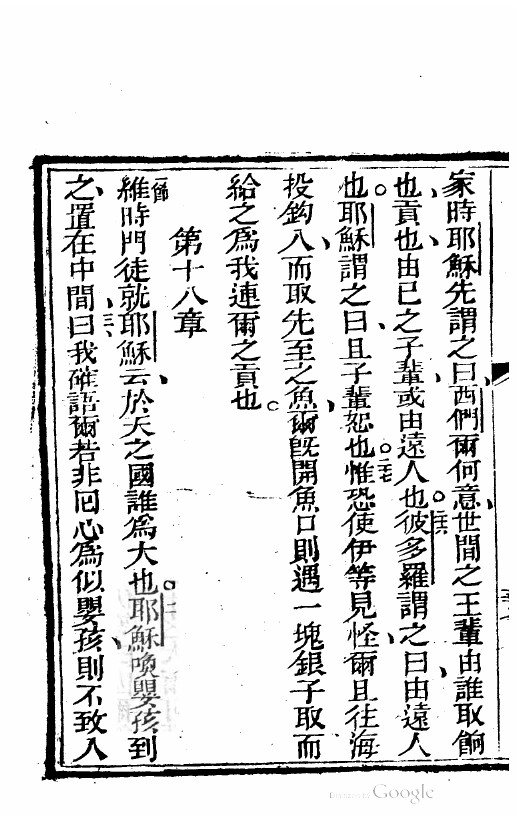 家時耶穌先謂之曰西們爾何意世間之王輩由誰取餉
也貢也由己之子輩或由遠人也 二六 彼多羅謂之曰由遠人
也耶穌謂之曰且子輩恕也 二七 惟恐使伊等見怪爾且往海
投鈎入而取先至之魚爾旣開魚口則遇一塊銀子取而
給之為我連爾之貢也
第十八章
一節 維時門徒就耶穌云於天之國誰為大也 二 耶穌喚嬰孩到
之置在中間 三 曰我確語爾若非回心為似嬰孩則不致入
Google